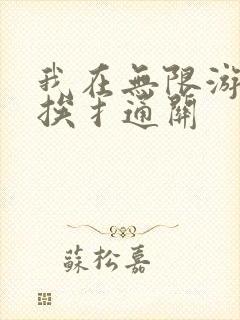 我在無限游
挨扌通關
蘇松嘉